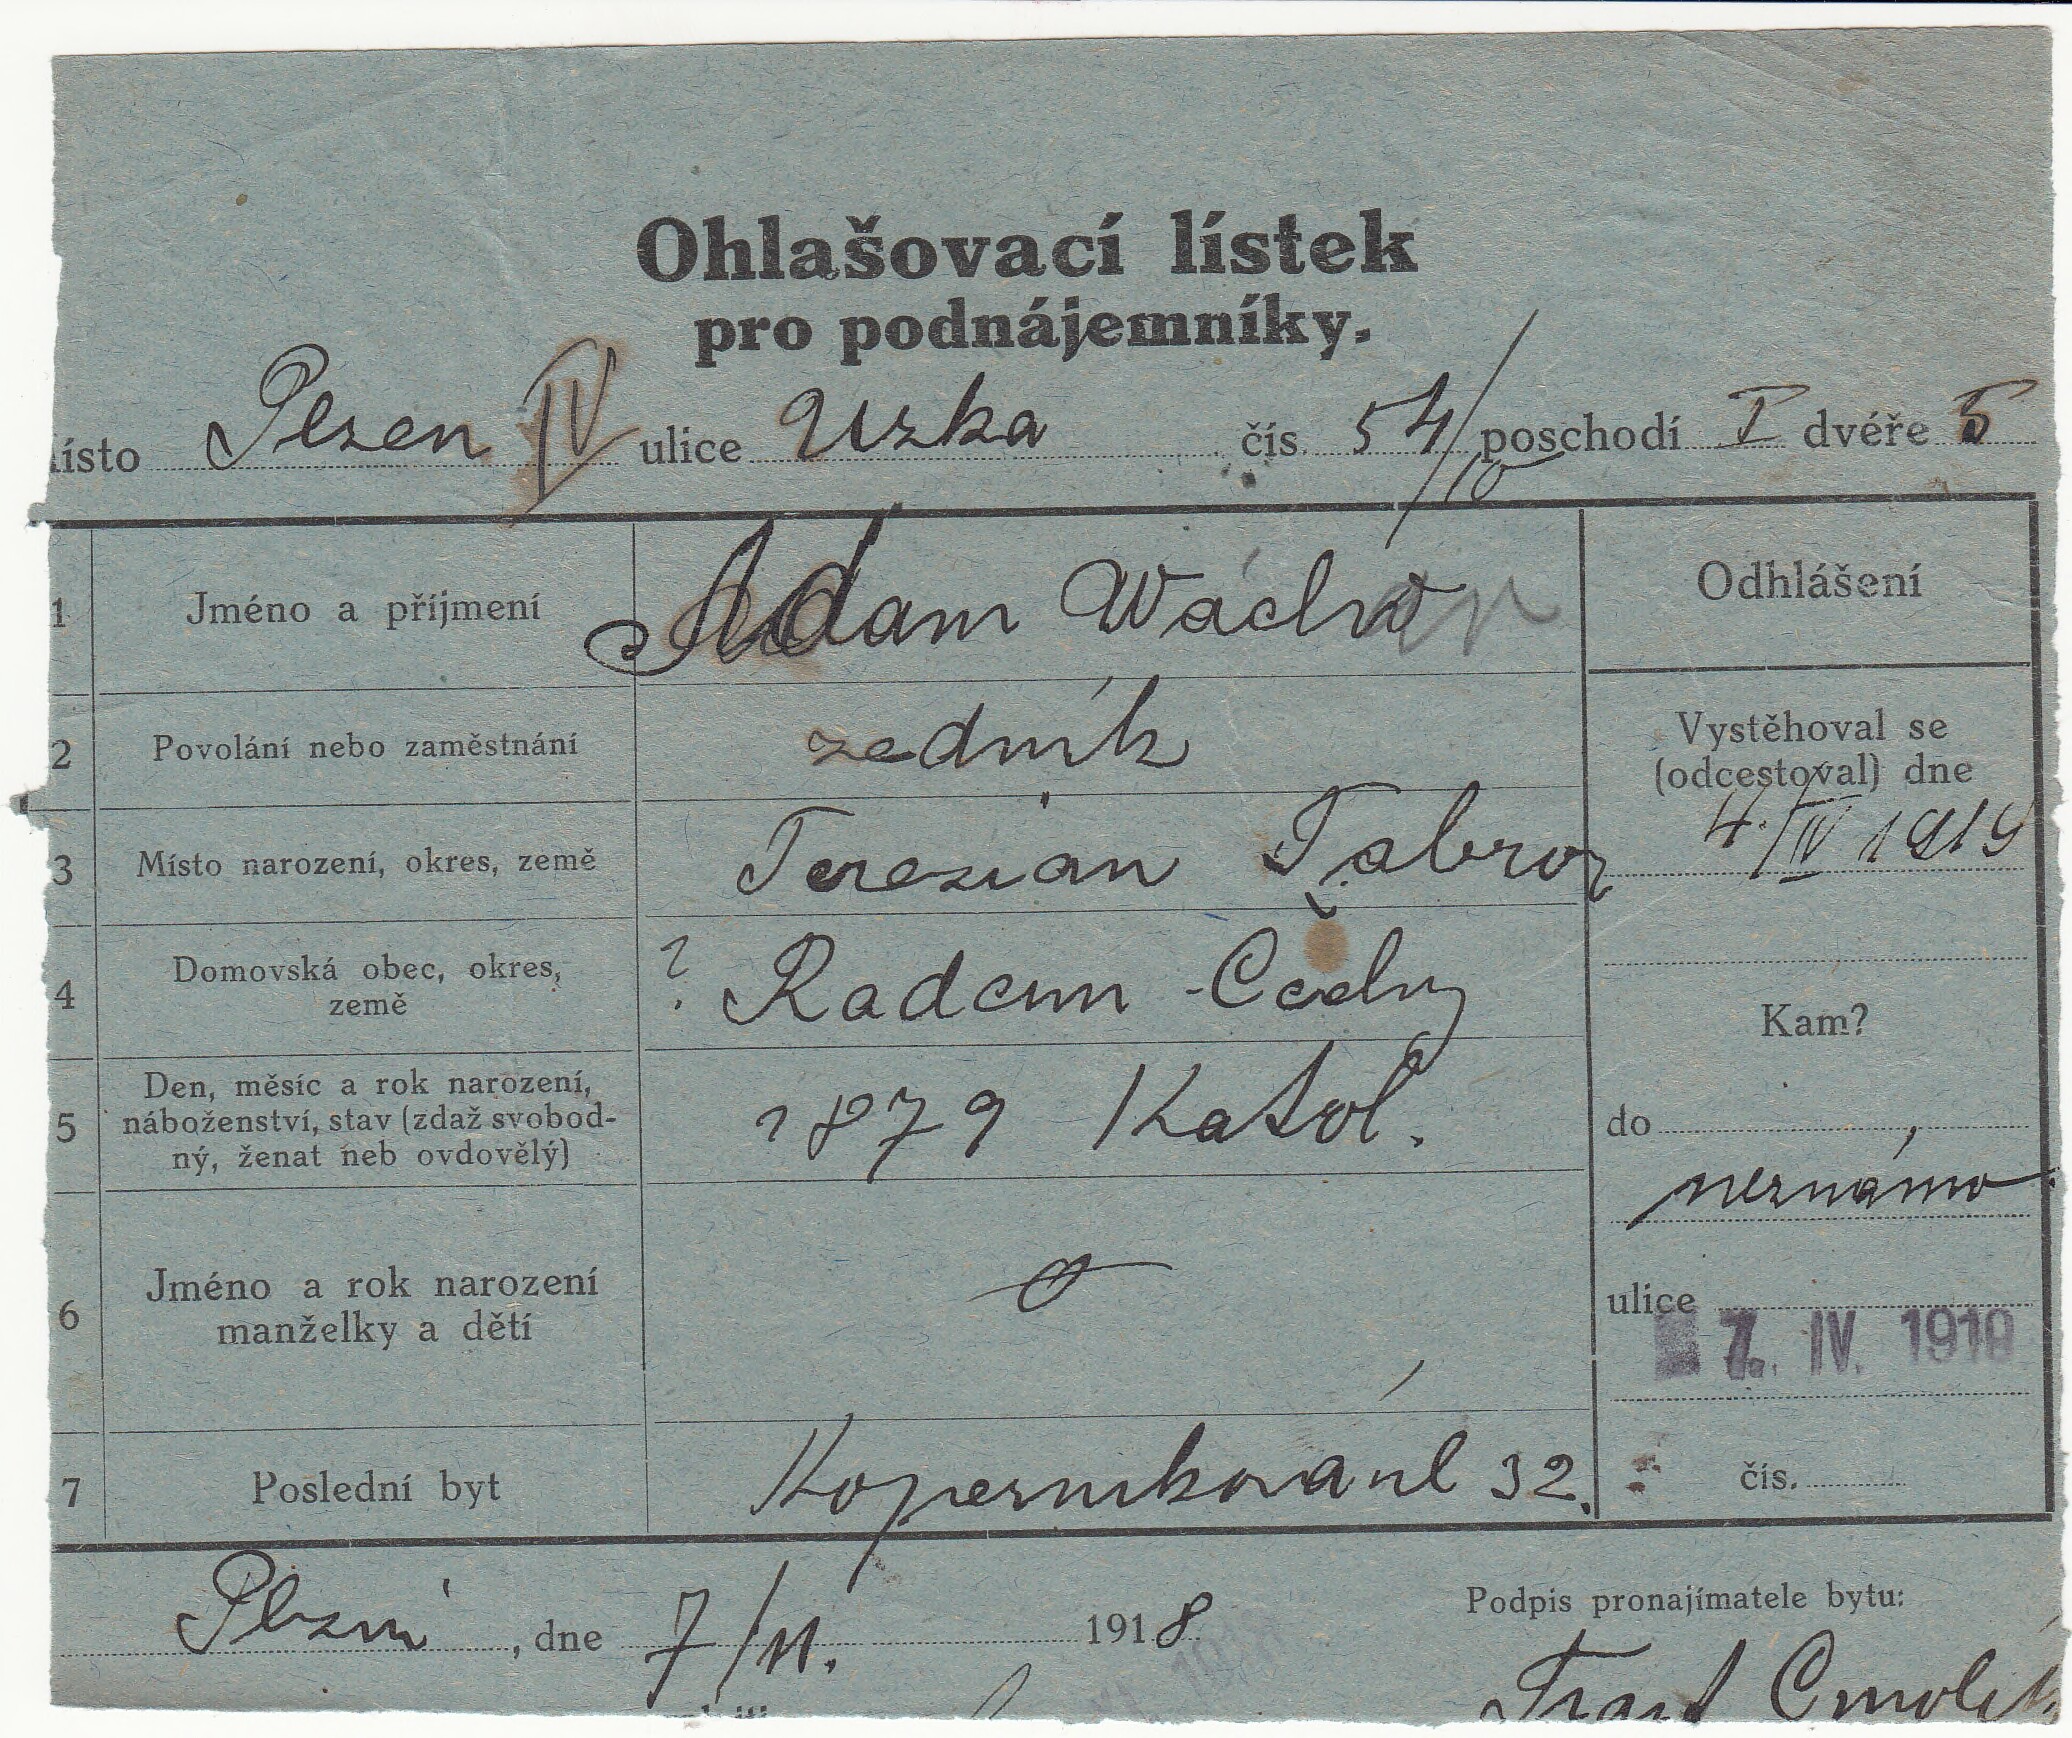 Ohlašovací lístek
pro podnájemníky.
ísto Plzen IV ulice Uzka čís. 54/10 poschodí I dvéře 5
1 Jméno a příjmení Adam
2 Povolání nebo zaměstnání zedník
3 Místo narození, okres, země Terezian
4 Domovská obec, okres, země ? Radcin - Cechy
5 Den, měsíc a rok narození, náboženství, stav (zdaž svobod-
ný, ženat neb ovdovělý) 1879 Katol.
6 Jméno a rok narození
manželky a dětí
7 Poslední byt 32.
Odhlášení
Vystěhoval se
(odcestoval) dne
4./IV 1919
Kam?
do
neznámo
ulice
7. IV. 1919
čís.
Plzni, dne 7/11. 1918
Podpis pronajímatele bytu: